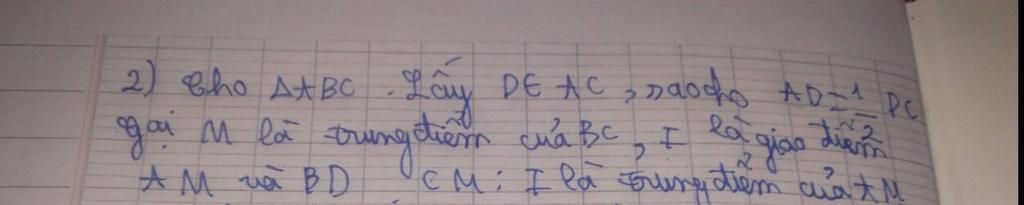 2) Cho ΔABC. Lấy D ∈ AC, sao cho AD = 1/2 DC
Gọi M là trung điểm của BC, I là giao điểm
AM và BD CM: I là trung điểm của AM